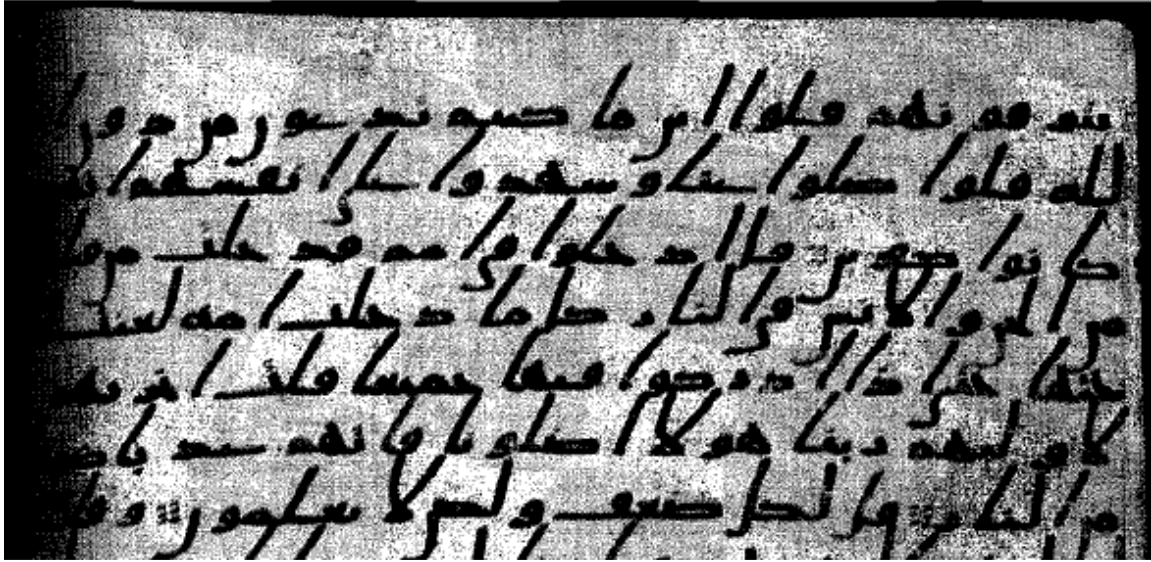 يتوفونهم قلوا اين ما كنتم تدعون من دون ا
لله قلوا ضلوا عنا وشهدوا على انفسهم انهم
كانوا كفرين قال ادخلوا في امم قد خلت من
من الجن والانس في النار كلما دخلت امه لعنت
اختها حتى اذا اداركوا فيها جميعا قلت اخريهم
لاوليهم ربنا هولا اضلونا فاتهم عذبا
من النار قال لكل ضعف ولكن لا تعلمون وقا